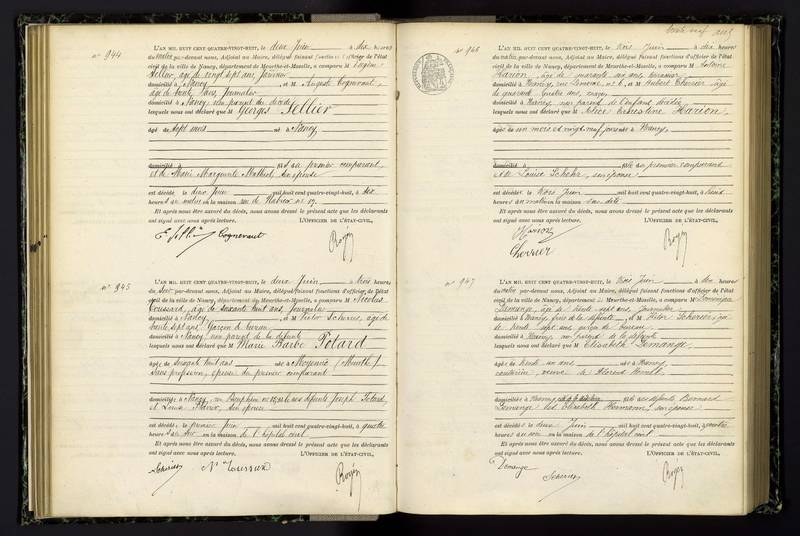 N° 944
L'AN MIL HUIT CENT QUATRE-VINGT-HUIT, le deux Juin à dix heures
du matin par-devant nous, Adjoint au Maire, délégué faisant fonctions d'officier de l'état
civil de la ville de Nancy, département de Meurthe-et-Moselle, a comparu M Eugène
Sellier, âgé de vingt sept ans,
domicilié à Nancy, et M Auguste Cognevaut,
âgé de trente ans, Journalier
domicilié à Nancy non parent du décédé
lesquels nous ont déclaré que M Georges Sellier
âgé de sept mois né à Nancy
domicilié à est au premier comparant,
et de Marie Marguerite Mathieu, son épouse
est décédé le deux Juin mil huit cent quatre-vingt-huit, à six
heures du matin en la maison rue de
Et après nous être assuré du décès, nous avons dressé le présent acte que les déclarants
ont signé avec nous après lecture. L'OFFICIER DE L'ÉTAT-CIVIL,
E. Sellier Cognevaut
N° 945
L'AN MIL HUIT CENT QUATRE-VINGT-HUIT, le deux Juin à trois heures
du soir par-devant nous, Adjoint au Maire, délégué faisant fonctions d'officier de l'état
civil de la ville de Nancy, département de Meurthe-et-Moselle, a comparu M Nicolas
Toussard, âgé de soixante huit ans, Journalier
domicilié à Nancy, et M Victor Scherrer, âgé de
trente sept ans, Garçon de bureau
domicilié à Nancy non parent de la défunte
lesquels nous ont déclaré que M Marie Barbe Polard
âgée de soixante huit ans née à Moyenvic (Meurthe)
Sans profession, épouse du premier comparant
domiciliée à Nancy, défunts Joseph Polard
et son épouse
est décédée le premier Juin mil huit cent quatre-vingt-huit, à quatre
heures du soir en la maison de l'hôpital civil
Et après nous être assuré du décès, nous avons dressé le présent acte que les déclarants
ont signé avec nous après lecture. L'OFFICIER DE L'ÉTAT-CIVIL,
N° 946
L'AN MIL HUIT CENT QUATRE-VINGT-HUIT, le trois Juin à dix heures
du matin par-devant nous, Adjoint au Maire, délégué faisant fonctions d'officier de l'état
civil de la ville de Nancy, département de Meurthe-et-Moselle, a comparu M Antoine
Harion, âgé de quarante un ans,
domicilié à Nancy, n° 6, et M Hubert Cherrier, âgé
de quarante quatre ans,
domicilié à Nancy, non parent de l'enfant décédée
lesquels nous ont déclaré que M Alice Ernestine Harion,
âgée de un mois et vingt neuf jours née à Nancy,
domiciliée à fille au premier comparant
et de Louise son épouse
est décédée le trois Juin mil huit cent quatre-vingt-huit, à
heures du matin en la maison sus dite
Et après nous être assuré du décès, nous avons dressé le présent acte que les déclarants
ont signé avec nous après lecture. L'OFFICIER DE L'ÉTAT-CIVIL,
Harion
Cherrier
N° 947
L'AN MIL HUIT CENT QUATRE-VINGT-HUIT, le trois Juin à dix heures
du matin par-devant nous, Adjoint au Maire, délégué faisant fonctions d'officier de l'état
civil de la ville de Nancy, département de Meurthe-et-Moselle, a comparu M Dominique
Demange, âgé de trente sept ans, Journalier
domicilié à Nancy, frère de la défunte, et M Victor Scherrer, âgé
de trente sept ans, garçon de bureau
domicilié à Nancy, non parent de la défunte
lesquels nous ont déclaré que M Elisabeth Demange,
âgée de trente un ans, née à Nancy,
couturière, veuve de Florend
domiciliée à Nancy, défunts Bernard
Demange et Elisabeth Hermann, son épouse
est décédée le deux Juin mil huit cent quatre-vingt-huit, à quatre
heures du soir en la maison de l'hôpital civil
Et après nous être assuré du décès, nous avons dressé le présent acte que les déclarants
ont signé avec nous après lecture. L'OFFICIER DE L'ÉTAT-CIVIL,
Demange